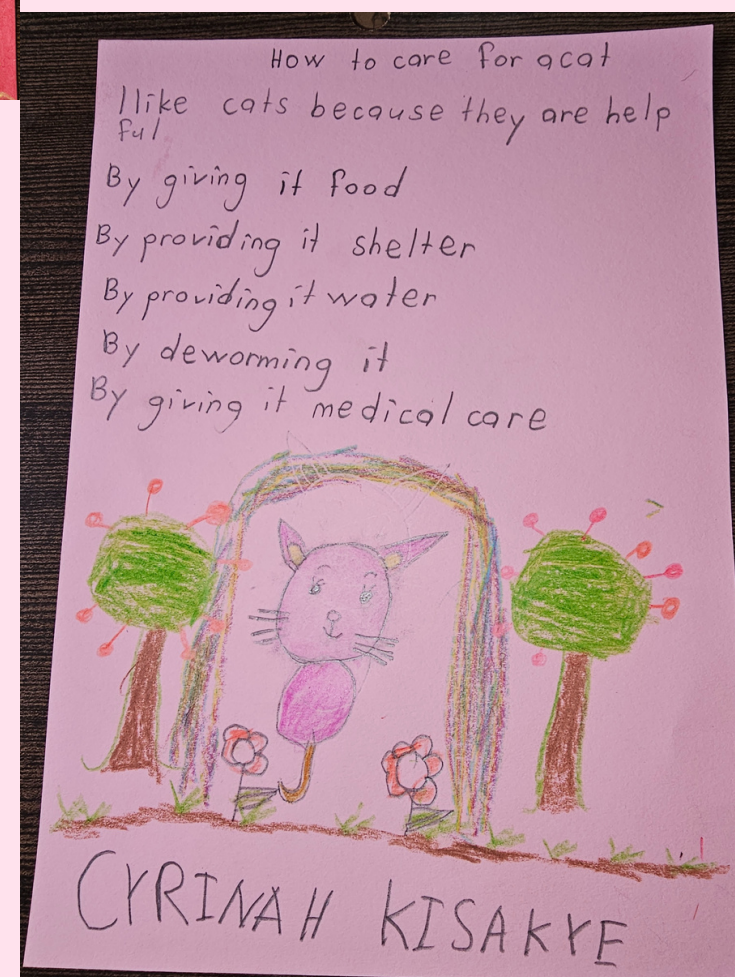 How to care for acat
I like cats because they are help
ful
By giving it food
By providing it shelter
By providing it water
By deworming it
By giving it medical care
CYRINAH KISAKYE